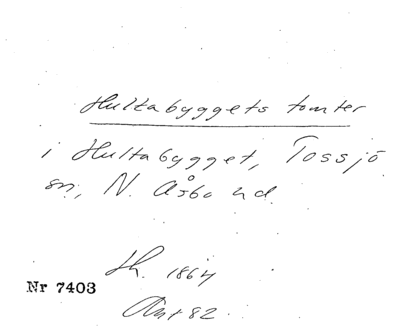 Hultabyggets tomter
i Hultabygget, Tossjö
sn, N. Åsbo hd.
th. 1864
Nr 7403
Ant 82.